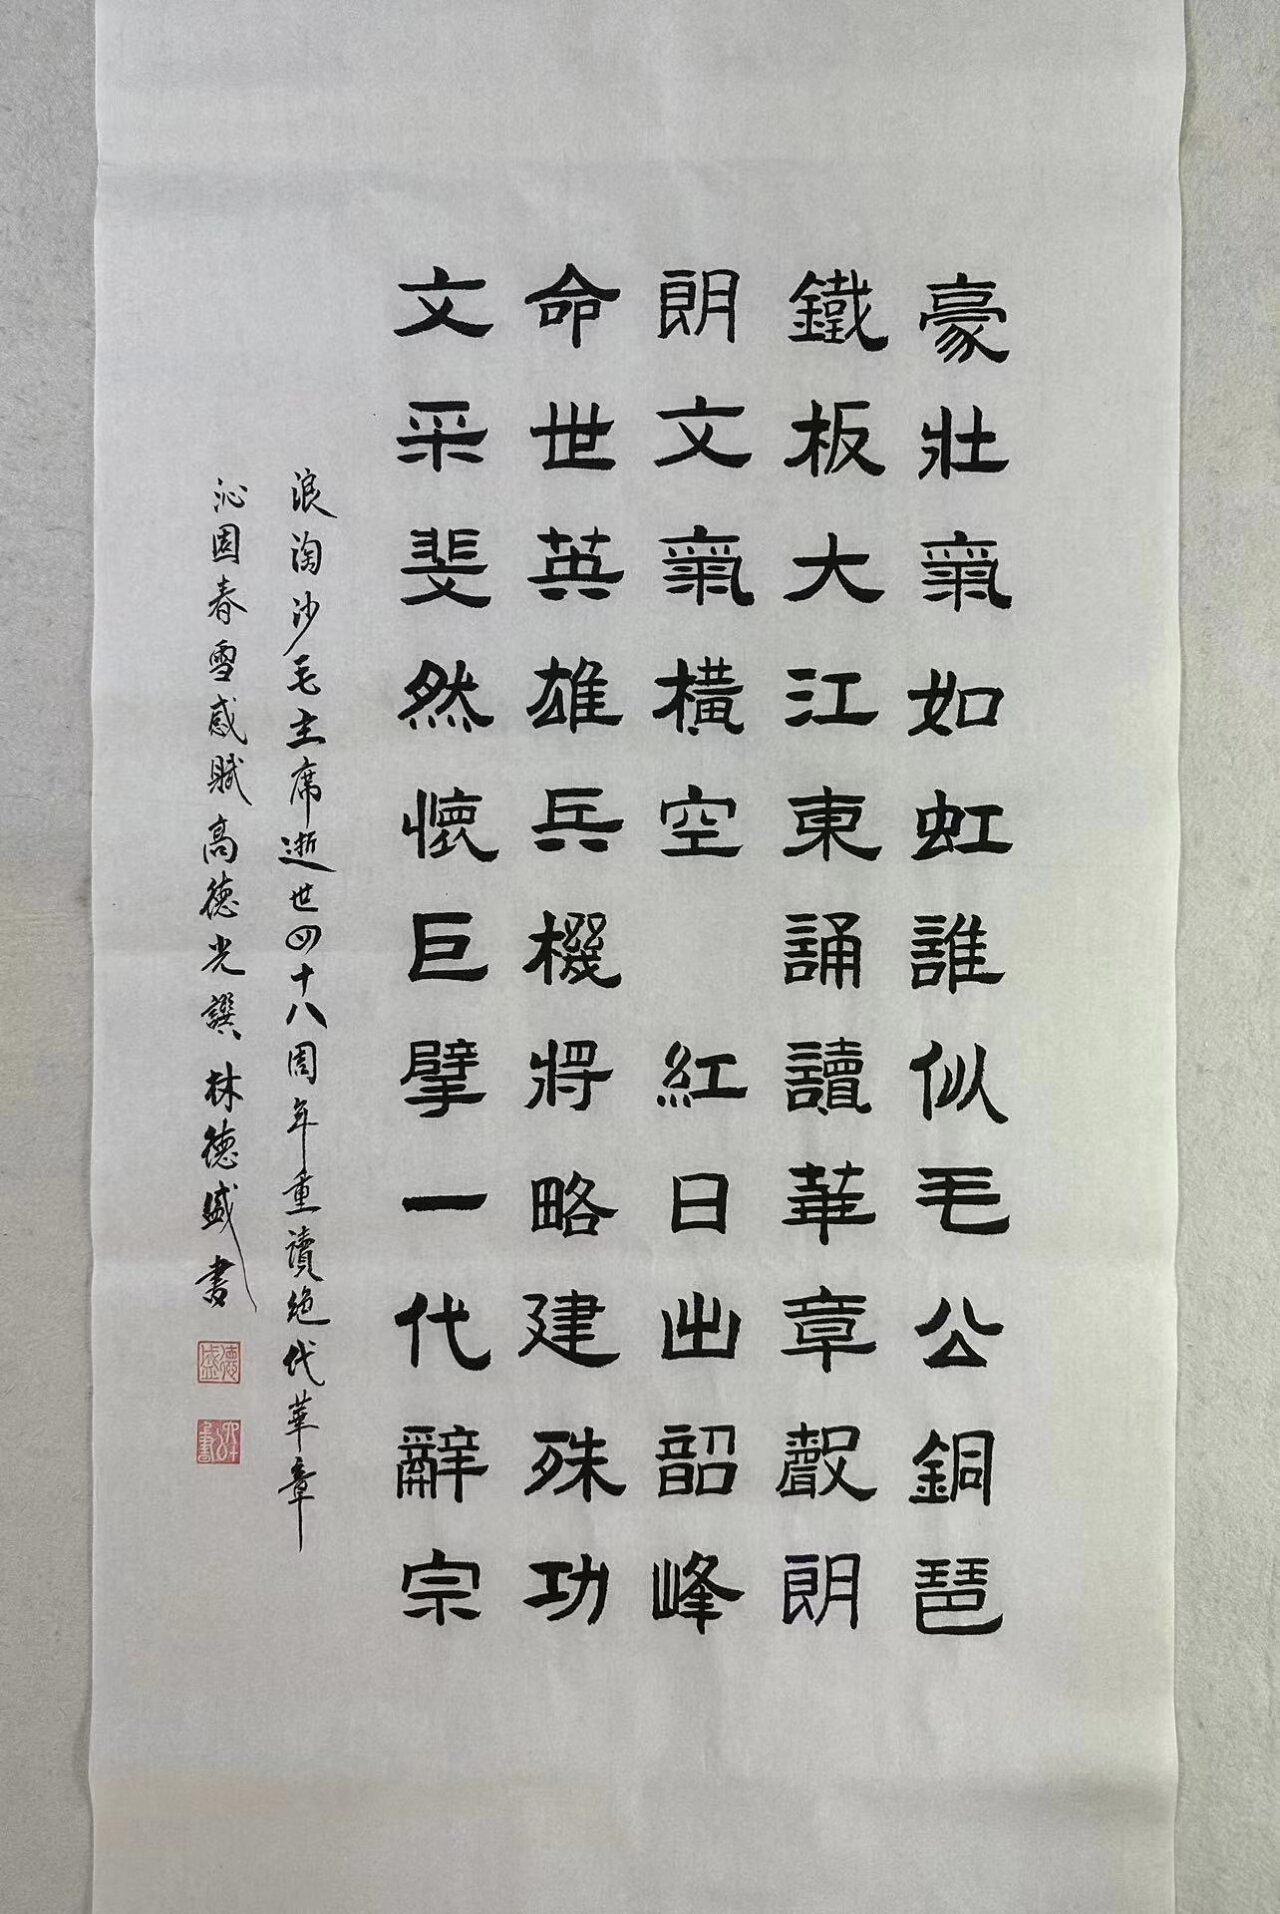 豪壯氣如虹誰似毛公銅琶
鐵板大江東誦讀華章聲朗
朗文氣橫空　紅日出韶峰
命世英雄兵機將略建殊功
文采斐然懷巨擘一代辭宗
浪淘沙毛主席逝世四十八周年重讀絕代華章
沁園春雪感賦高德光譔林德盛書
德盛